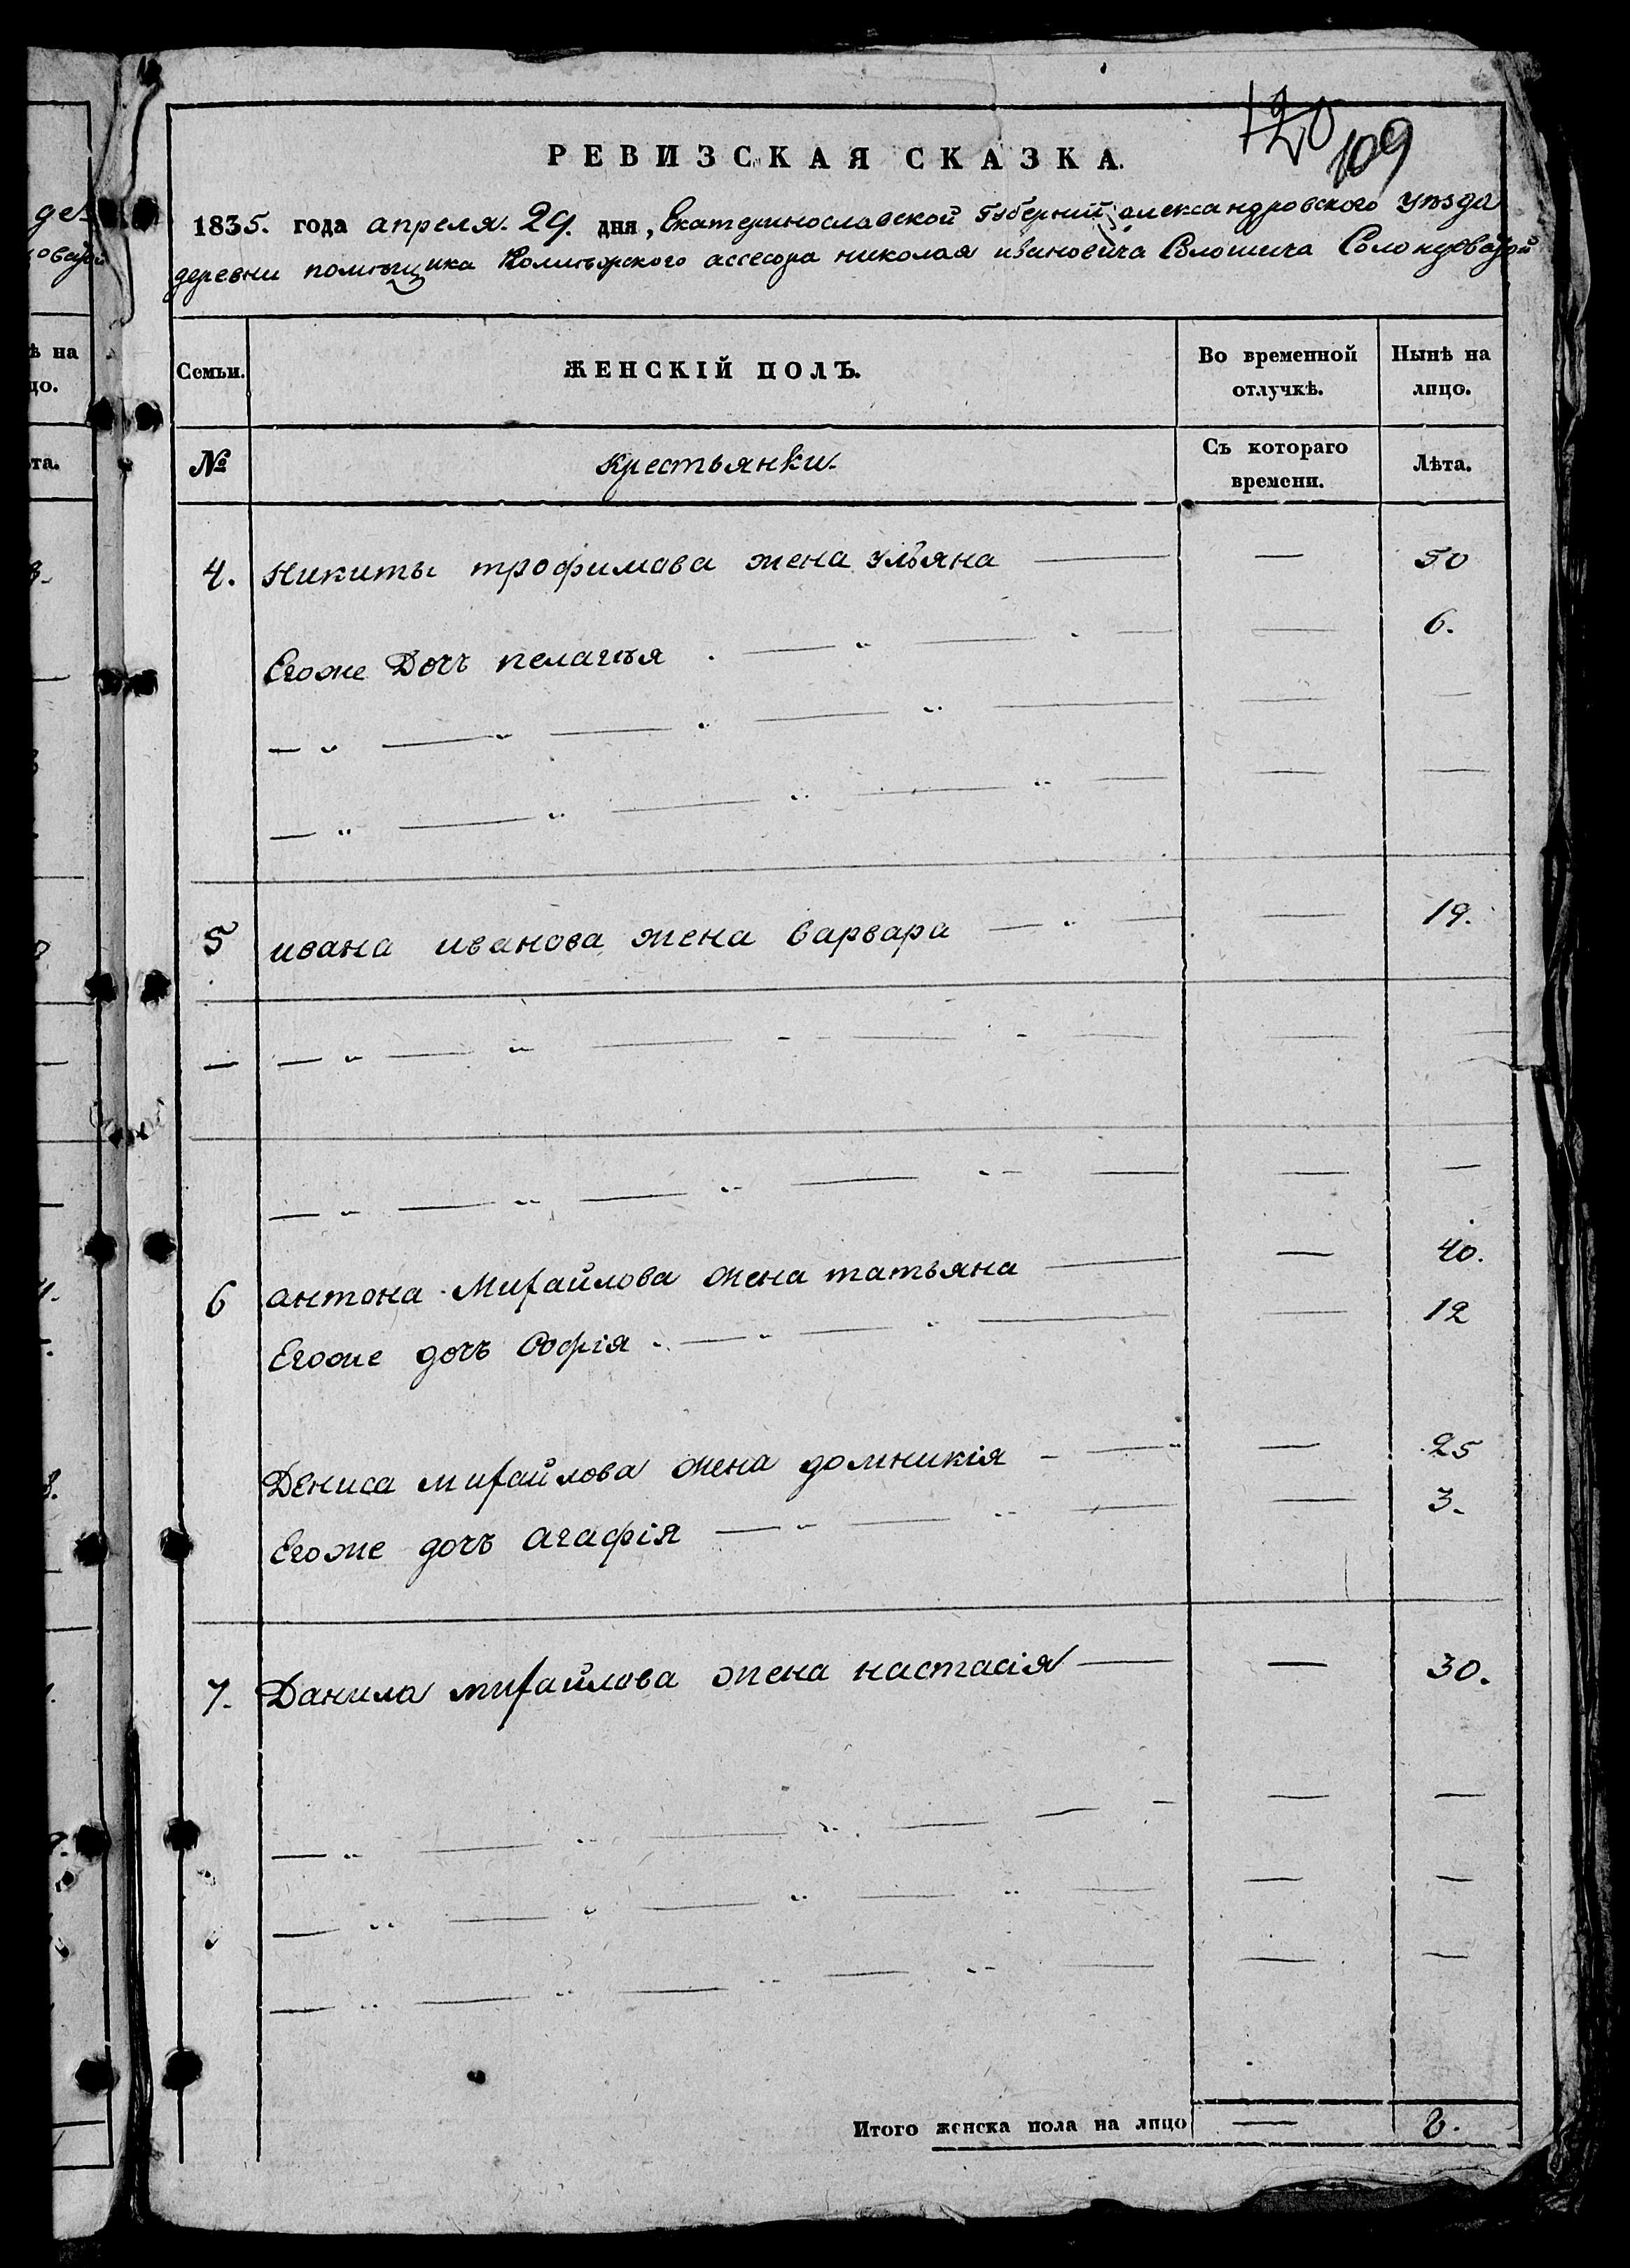 120
109
РЕВИЗСКАЯ СКАЗКА.
1835. года апреля. 29. дня, Екатеринославской Губернии александровского уѣзда
деревни помѣщика Колѣжского ассесора николая ивановича
Семьи.
ЖЕНСКІЙ ПОЛЪ.
Во временной отлучкѣ.
Нынѣ на лицо.
№
крестьянки.
Съ котораго времени.
Лѣта.
4. Никиты трофимова жена ульяна — — 50
Егоже Дочъ пелагѣя — — 6.
5 ивана иванова жена варвара — — 19.
6 антона Михайлова жена татьяна — — 40.
Егоже дочъ Софія — — 12
Дениса михайлова жена домникія — — 25
Егоже дочъ агафія — — 3.
7. Данила михайлова жена настасія — — 30.
Итого женска пола на лицо — 8.
де-
ѣ на
цо.
та.